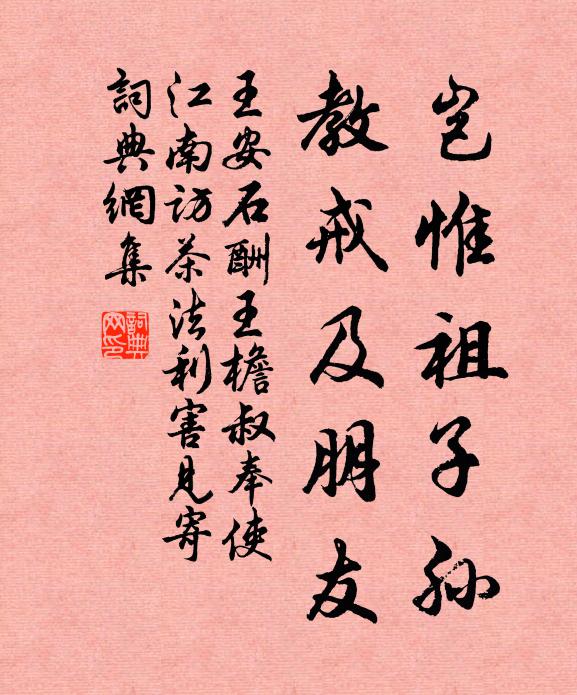 豈惟祖子孫
教戒及朋友
王安石酬王檐叔奉使
江南訪茶法利害見寄
詞典網集
詞典
网印